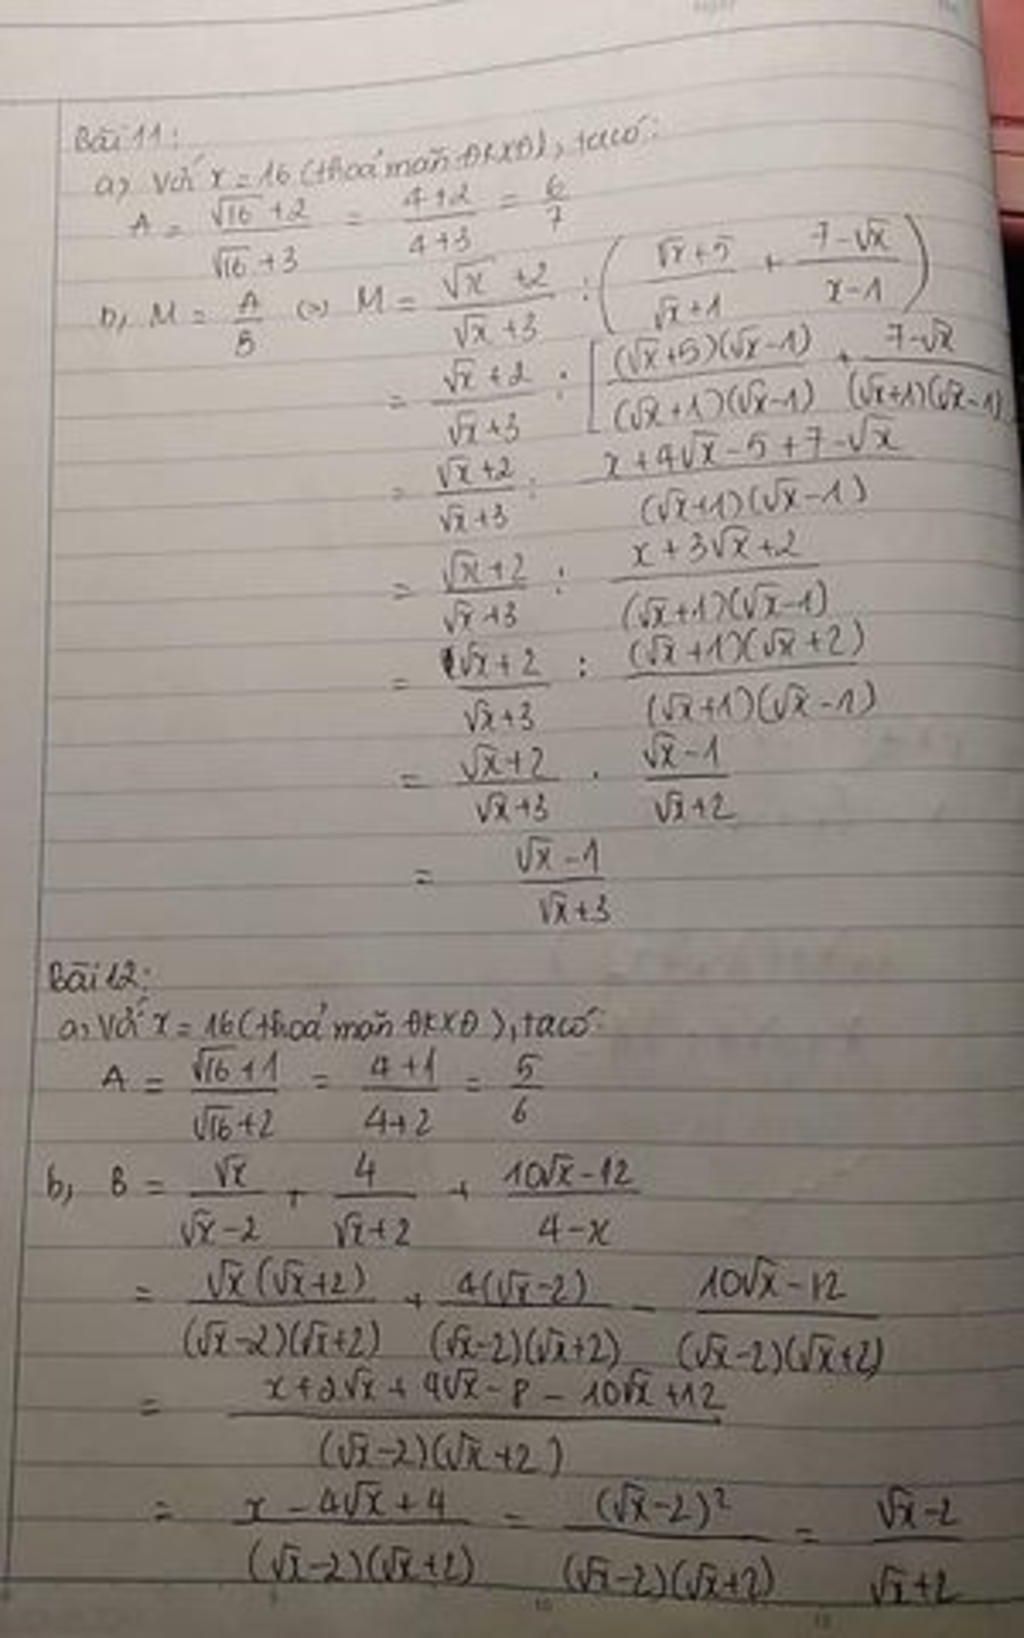 Bài 11:
a, Với x = 16 (thoả mãn ĐKXĐ), ta có:
A = (√16 + 2)/(√16 + 3) = (4+2)/(4+3) = 6/7
b, M = A/B (=) M = (√x + 2)/(√x + 3) : ((√x + 5)/(√x + 1) + (7 - √x)/(x - 1))
= (√x + 2)/(√x + 3) : [(√x + 5)(√x - 1)/(√x + 1)(√x - 1) + (7 - √x)/(√x + 1)(√x - 1)
= (√x + 2)/(√x + 3) : (x + 4√x - 5 + 7 - √x)/(√x + 1)(√x - 1)
= (√x + 2)/(√x + 3) : (x + 3√x + 2)/(√x + 1)(√x - 1)
= (√x + 2)/(√x + 3) : (√x + 1)(√x + 2)/(√x + 1)(√x - 1)
= (√x + 2)/(√x + 3) . (√x - 1)/(√x + 2)
= (√x - 1)/(√x + 3)
Bài 12:
a, Với x = 16 (thoả mãn ĐKXĐ), ta có:
A = (√16 + 1)/(√16 + 2) = (4 + 1)/(4 + 2) = 5/6
b, B = √x/(√x - 2) + 4/(√x + 2) + (10√x - 12)/(4 - x)
= √x(√x + 2)/(√x - 2)(√x + 2) + 4(√x - 2)/(√x - 2)(√x + 2) - (10√x - 12)/(√x - 2)(√x + 2)
= (x + 2√x + 4√x - 8 - 10√x + 12)/(√x - 2)(√x + 2)
= (x - 4√x + 4)/(√x - 2)(√x + 2) = (√x - 2)²/(√x - 2)(√x + 2) = (√x - 2)/(√x + 2)